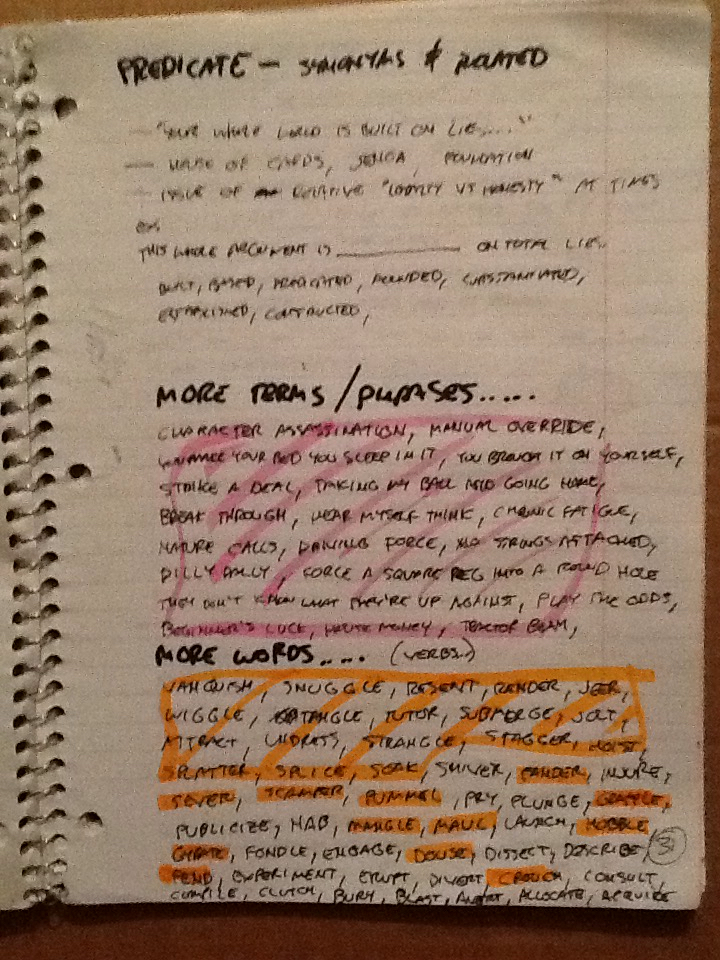 PREDICATE — SYNONYMS & RELATED
— "YOUR WHOLE WORLD IS BUILT ON LIES...."
— HOUSE OF CARDS, JENGA, FOUNDATION
— ISSUE OF RELATIVE "LOYALTY VS HONESTY" AT TIMES
EX
THIS WHOLE ARGUMENT IS __________ ON TOTAL LIES.
BUILT, BASED, PREDICATED, FOUNDED, SUBSTANTIATED,
ESTABLISHED, CONSTRUCTED,
MORE TERMS/PHRASES.....
CHARACTER ASSASSINATION, MANUAL OVERRIDE,
YOU MAKE YOUR BED YOU SLEEP IN IT, YOU BROUGH IT ON YOURSELF,
STRIKE A DEAL, TAKING MY BALL AND GOING HOME,
BREAK THROUGH, HEAR MYSELF THINK, CHRONIC FATIGUE,
NATURE CALLS, DRIVING FORCE, NO STRINGS ATTACHED,
DILLY DALLY, FORCE A SQUARE PEG INTO A ROUND HOLE
THEY DON'T KNOW WHAT THEY'RE UP AGAINST, PLAY THE ODDS,
BEGINNER'S LUCK, HOUSE MONEY, TRACTOR BEAM,
MORE WORDS..... (VERBS..)
VANQUISH, SNUGGLE, RESENT, RENDER, JEER,
WIGGLE, ENTANGLE, TUTOR, SUBMERGE, JOLT,
ATTRACT, UNDRESS, STRANGLE, STAGGER, HOIST,
SPLATTER, SPLICE, SOAK, SHIVER, PANDER, INJURE,
SEVER, SCAMPER, PUMMEL, PRY, PLUNGE, GRAPPLE,
PUBLICIZE, NAB, MANGLE, MAUL, LAUNCH, HOBBLE
GYRATE, FONDLE, ENGAGE, DOUSE, DISSECT, DESCRIBE, 3
FEND, EXPERIMENT, ERUPT, DIVERT, CROUCH, CONSULT,
COMPILE, CLUTCH, BURY, BLAST, AVERT, ALLOCATE, ACQUIRE